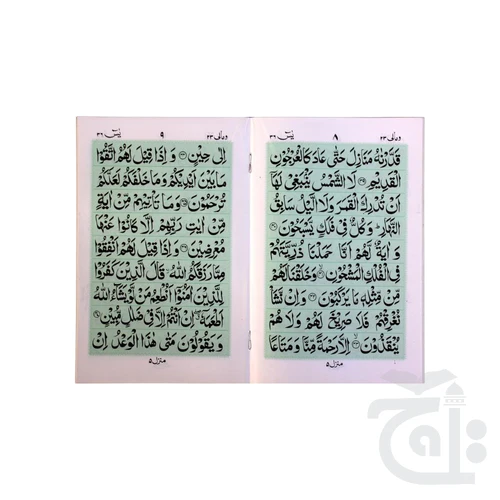 ومالی ۲۳ ۸ یٰسٓ ۳۶
قَدَّرْنٰهُ مَنَازِلَ حَتّٰى عَادَ كَالْعُرْجُوْنِ
الْقَدِيْمِ ۝۳۹ لَا الشَّمْسُ يَنْۢبَغِيْ لَهَاۤ
اَنْ تُدْرِكَ الْقَمَرَ وَلَا الَّيْلُ سَابِقُ
النَّهَارِ ؕ وَ كُلٌّ فِيْ فَلَكٍ يَّسْبَحُوْنَ ۝۴۰
وَ اٰيَةٌ لَّهُمْ اَنَّا حَمَلْنَا ذُرِّيَّتَهُمْ
فِي الْفُلْكِ الْمَشْحُوْنِ ۝۴۱ وَخَلَقْنَا لَهُمْ
مِّنْ مِّثْلِهٖ مَا يَرْكَبُوْنَ ۝۴۲ وَاِنْ نَّشَاْ
نُغْرِقْهُمْ فَلَا صَرِيْخَ لَهُمْ وَلَا هُمْ
يُنْقَذُوْنَ ۝۴۳ اِلَّا رَحْمَةً مِّنَّا وَمَتَاعًا
منزل ۵
ومالی ۲۳ ۹ یٰسٓ ۳۶
اِلٰى حِيْنٍ ۝۴۴ وَ اِذَا قِيْلَ لَهُمُ اتَّقُوْا
مَا بَيْنَ اَيْدِيْكُمْ وَمَا خَلْفَكُمْ لَعَلَّكُمْ
تُرْحَمُوْنَ ۝۴۵ وَمَا تَاْتِيْهِمْ مِّنْ اٰيَةٍ
مِّنْ اٰيٰتِ رَبِّهِمْ اِلَّا كَانُوْا عَنْهَا
مُعْرِضِيْنَ ۝۴۶ وَاِذَا قِيْلَ لَهُمْ اَنْفِقُوْا
مِمَّا رَزَقَكُمُ اللّٰهُ ۙ قَالَ الَّذِيْنَ كَفَرُوْا
لِلَّذِيْنَ اٰمَنُوْۤا اَنُطْعِمُ مَنْ لَّوْ يَشَآءُ اللّٰهُ
اَطْعَمَهٗۤ ۖ اِنْ اَنْتُمْ اِلَّا فِيْ ضَلٰلٍ مُّبِيْنٍ ۝۴۷
وَ يَقُوْلُوْنَ مَتٰى هٰذَا الْوَعْدُ اِنْ
منزل ۵